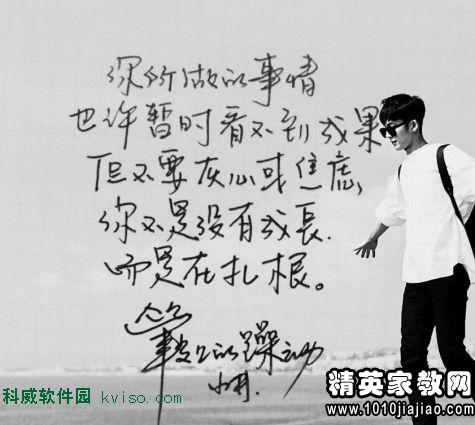 你所做的事情
也许暂时看不到成果
但不要灰心或焦虑,
你不是没有成长.
而是在扎根。
的躁动
科威软件园 kviso.com
精英家教网
www.1010jiajiao.com